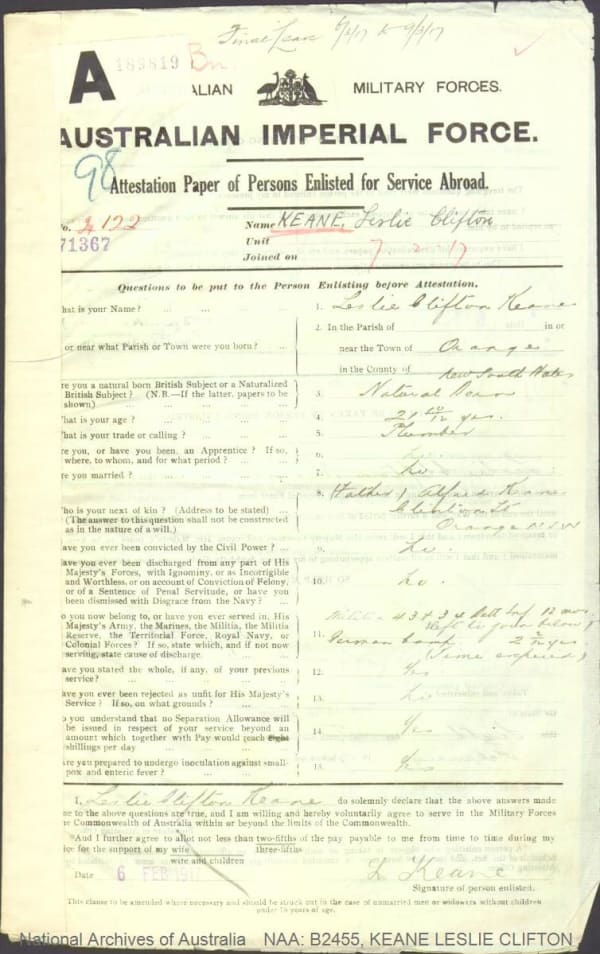 Final Leave 6/2/17 to 9/2/17
A 189819 Bn
ALIAN MILITARY FORCES.
AUSTRALIAN IMPERIAL FORCE.
98
Attestation Paper of Persons Enlisted for Service Abroad.
No. 122 Name KEANE, Leslie Clifton
71367 Unit
Joined on 7 2 17
Questions to be put to the Person Enlisting before Attestation.
hat is your Name? ... ... 1. Leslie Clifton Keane
2. In the Parish of in or
or near what Parish or Town were you born? ... near the Town of Orange
in the County of New South Wales
re you a natural born British Subject or a Naturalized
British Subject? (N.B.—If the latter, papers to be
shown) ... ... 3. Natural Born
hat is your age? ... ... 4. 21 10/12 yrs.
hat is your trade or calling? ... ... 5. Plumber
re you, or have you been, an Apprentice? If so,
where, to whom, and for what period? ... 6. No
re you married? ... ... 7. No
8. (Father) Alfred Keane
ho is your next of kin? (Address to be stated) ...
(The answer to this question shall not be constructed
as in the nature of a will.) Orange NSW
ave you ever been convicted by the Civil Power? ... 9. No.
ave you ever been discharged from any part of His
Majesty's Forces, with Ignominy, or as Incorrigible
and Worthless, or on account of Conviction of Felony,
or of a Sentence of Penal Servitude, or have you
been dismissed with Disgrace from the Navy? ... 10. No.
o you now belong to, or have you ever served in, His
Majesty's Army, the Marines, the Militia, the Militia
Reserve, the Territorial Force, Royal Navy, or
Colonial Forces? If so, state which, and if not now
serving, state cause of discharge. 11. Militia 43 & 34 Batt Inf 12 mos.
(left to join below)
German Camp 2 2/12 yrs
(Time expired)
ave you stated the whole, if any, of your previous
service? ... ... 12. Yes
ave you ever been rejected as unfit for His Majesty's
Service? If so, on what grounds? ... 13. No
o you understand that no Separation Allowance will
be issued in respect of your service beyond an
amount which together with Pay would reach eight
shillings per day ... 14. Yes
Are you prepared to undergo inoculation against small-
pox and enteric fever? ... 15. Yes
I, Leslie Clifton Keane do solemnly declare that the above answers made
me to the above questions are true, and I am willing and hereby voluntarily agree to serve in the Military Forces
the Commonwealth of Australia within or beyond the limits of the Commonwealth.
And I further agree to allot not less than two-fifths of the pay payable to me from time to time during my
ice for the support of my wife three-fifths
wife and children
Date 6 FEB 191 L Keane
Signature of person enlisted.
This clause to be amended where necessary and should be struck out in the case of unmarried men or widowers without children
under 18 years of age.
National Archives of Australia NAA: B2455, KEANE LESLIE CLIFTON